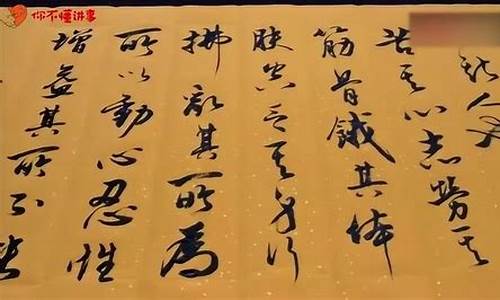 你不懂讲事
斯人也
苦其心志勞其
筋骨餓其体
肤空乏其身行
拂亂其所為
所以動心忍性
增益其所不能